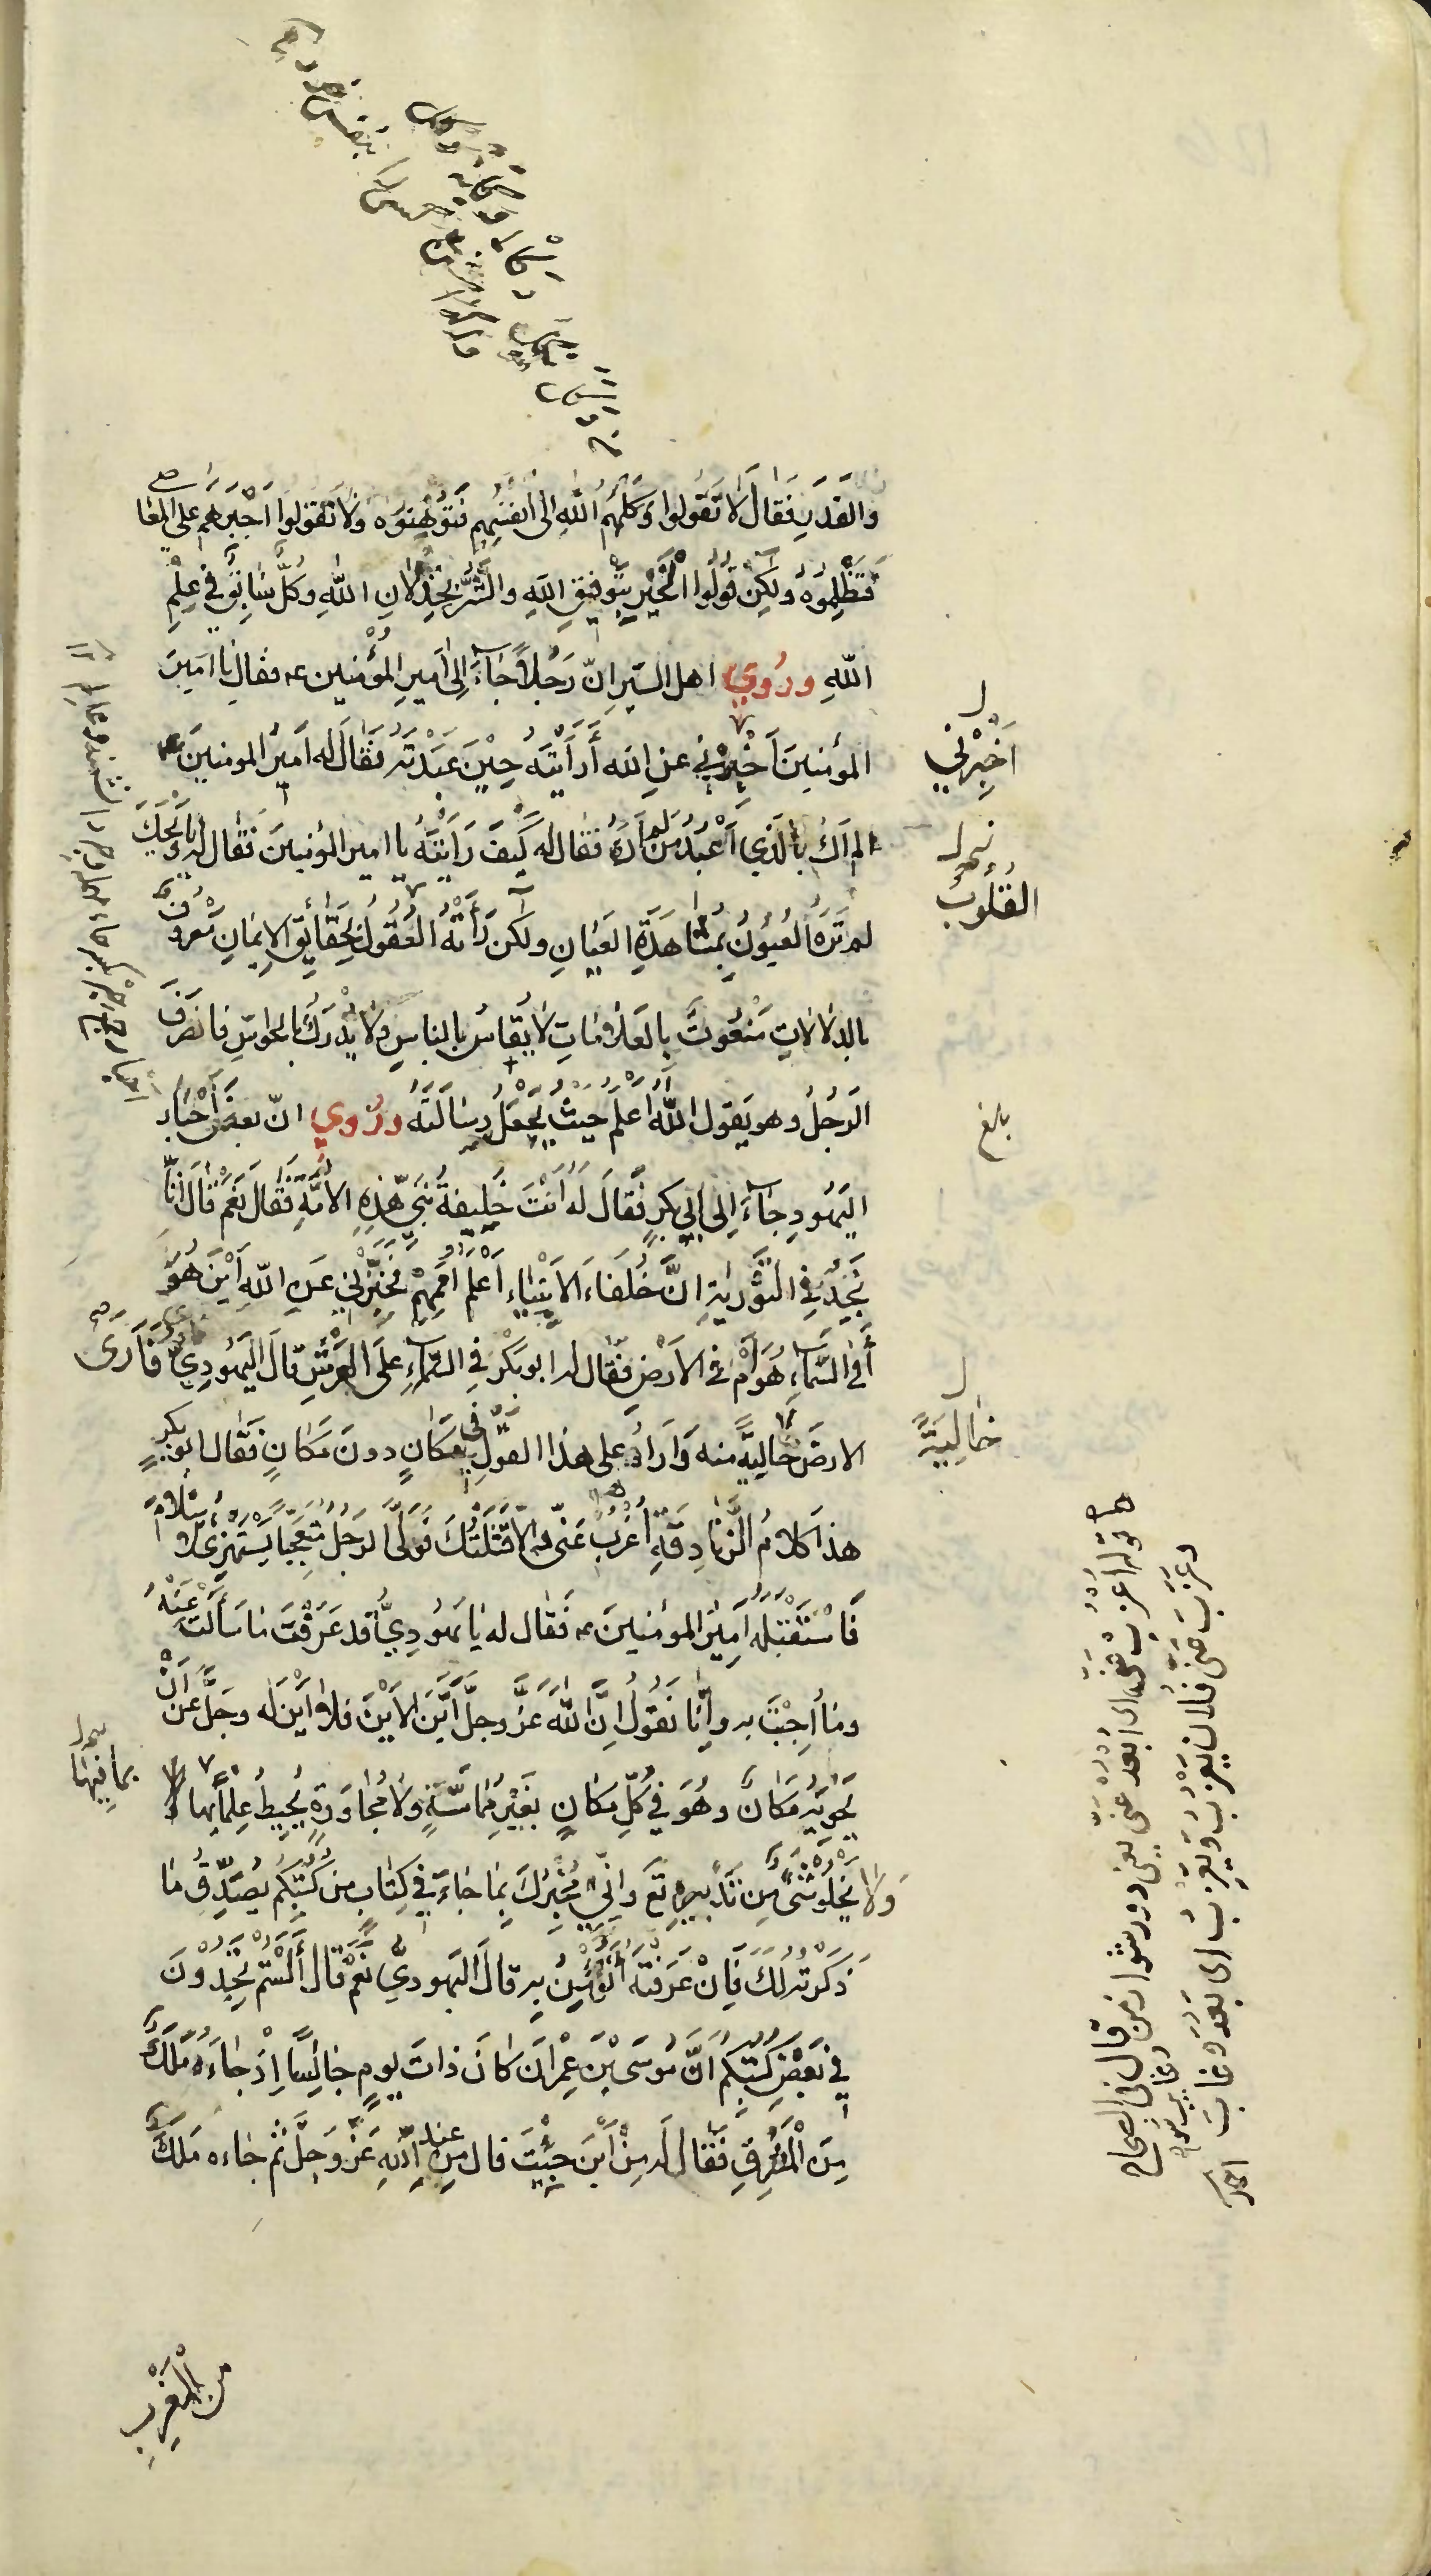 والقدر فقال لا تَقُولوا وَكَلَهُم اللهُ الى اَنفُسِهِم فَتُوَهِّنُوهُ ولا تقولوا اَجْبَرَهُم على المعاصي
فَتُظَلِّمُوهُ ولكِن قُولُوا الْخَيْرُ بِتَوفيقِ اللهِ والشَّرُّ بِخِذْلانِ اللهِ وكُلٌّ سَابِقٌ في عِلْمِ
اللهِ ورُوِي اهل السّير انّ رَجُلاً جَاءَ اِلى اَميرِ المُؤْمنين ع فقال يا اميرَ
المؤمنينَ اَخْبِرْني عنِ الله أَرَأَيْتَهُ حِيْنَ عَبَدْتَهُ فَقَالَ له اَميرُ المومنينَ ع
لم اَكُ بالَّذي اَعْبُدُ مَن لم اَرَهُ فقال له كَيفَ رَاَيْتَهُ يا امير المؤمنينَ فَقَال له يا وَيْحَكَ
لم تَرَهُ العُيُونُ بِمُشَاهَدَةِ العَيَانِ ولكن رَأَتْهُ العُقُولُ بِحَقَائِقِ الايمَانِ مَعْرُوفٌ
بالدلالاتِ مَنْعُوتٌ بالعَلامَاتِ لا يُقَاسُ بالناسِ ولا يُدْرَكُ بالحواسّ فانصَرَفَ
الرَجُلُ وهو يَقول اللهُ اَعْلَمُ حَيثُ يَجْعَلُ رِسَالَتَهُ ورُوِي انّ بعضَ اَحْبَارِ
اليَهُودِ جَاءَ اِلى ابي بكرٍ فَقَالَ لَهُ اَنْتَ خَلِيفَةُ نَبيِّ هٰذِهِ الاُمَّةِ فَقَال نَعَمْ قَالَ اِنَّا
نَجِدُ فِي التَّوْرَيٰةِ انَّ خُلَفَاءَ الاَنْبِيَاءِ اَعْلَمُ اُمَمِهِمْ فَخَبِّرْنِي عَنِ اللهِ اَيْنَ هُوَ
أَفي السَّمَاءِ هُوَ اَمْ في الاَرْضِ فقال له ابو بَكْرٍ فِي السَّمَاءِ عَلَى العَرْشِ قالَ اليَهُودِيُّ فَاَرَى
الارضَ خَالِيَةً منه وَاَرَاهُ على هذا القَولِ في مَكَانٍ دونَ مَكَانٍ فَقَال ابو بكرٍ
هذا كَلامُ الزَّنَادِقَةِ اُعْزُبْ عَنّي والّا قَتَلْتُكَ فَوَلَّى الرَجُلُ مُتَعَجِّبًا يَسْتَهْزِئُ بالاسْلامِ
فَاسْتَقْبَلَهُ اَمِيرُ المومنينَ ع فَقَال له يَا يَهُودِيُّ قد عَرَفْتُ مَا سَأَلْتَ عَنْهُ
ومَا اُجِبْتَ به واِنَّا نَقُولُ اِنَّ اللهَ عَزَّ وجلَّ اَيَّنَ الاَيْنَ فلا اَيْنَ له وجَلَّ عن اَنْ
يَحْوِيَهُ مَكَانٌ وهُوَ في كُلِّ مَكَانٍ بغَيْرِ مُمَاسَّةٍ ولا مُجَاوَرَةٍ يُحِيطُ عِلْمًا بِهَا
ولا يَخْلُو شَيْءٌ مِن تَدْبِيرِهِ تَع وانّي مُخْبِرُكَ بِمَا جَاءَ فِي كِتَابٍ من كُتُبِكُم يُصَدِّقُ مَا
ذَكَرْتُه لَكَ فَاِنْ عَرَفْتَهُ اَتُؤْمِنُ بِه قالَ اليَهودِيُّ نَعَمْ قَال أَلَسْتُمْ تَجِدُوْنَ
في بَعْضِ كُتُبِكُم اَنَّ مُوسَى بْنَ عِمْرانَ كَانَ ذاتَ يومٍ جَالِسًا اِذْ جَاءَهُ مَلَكٌ
مِنَ الْمَشْرِقِ فَقَال لَه مِنْ اَيْنَ جِئْتَ قال مِن عِنْدِ اللهِ عَزَّ وَجلَّ ثمّ جاءه مَلَكٌ
من المَغْرِبِ
اَخْبِرْنِي
القُلُوبُ
بلغ
خالِيَةً
بما فيها
قوله اعزب عني اى ابعد عني يعني دور شو از من قال في الصحاح
وعزب عني فلان يعزُب ويعزِب اى بعد وغاب